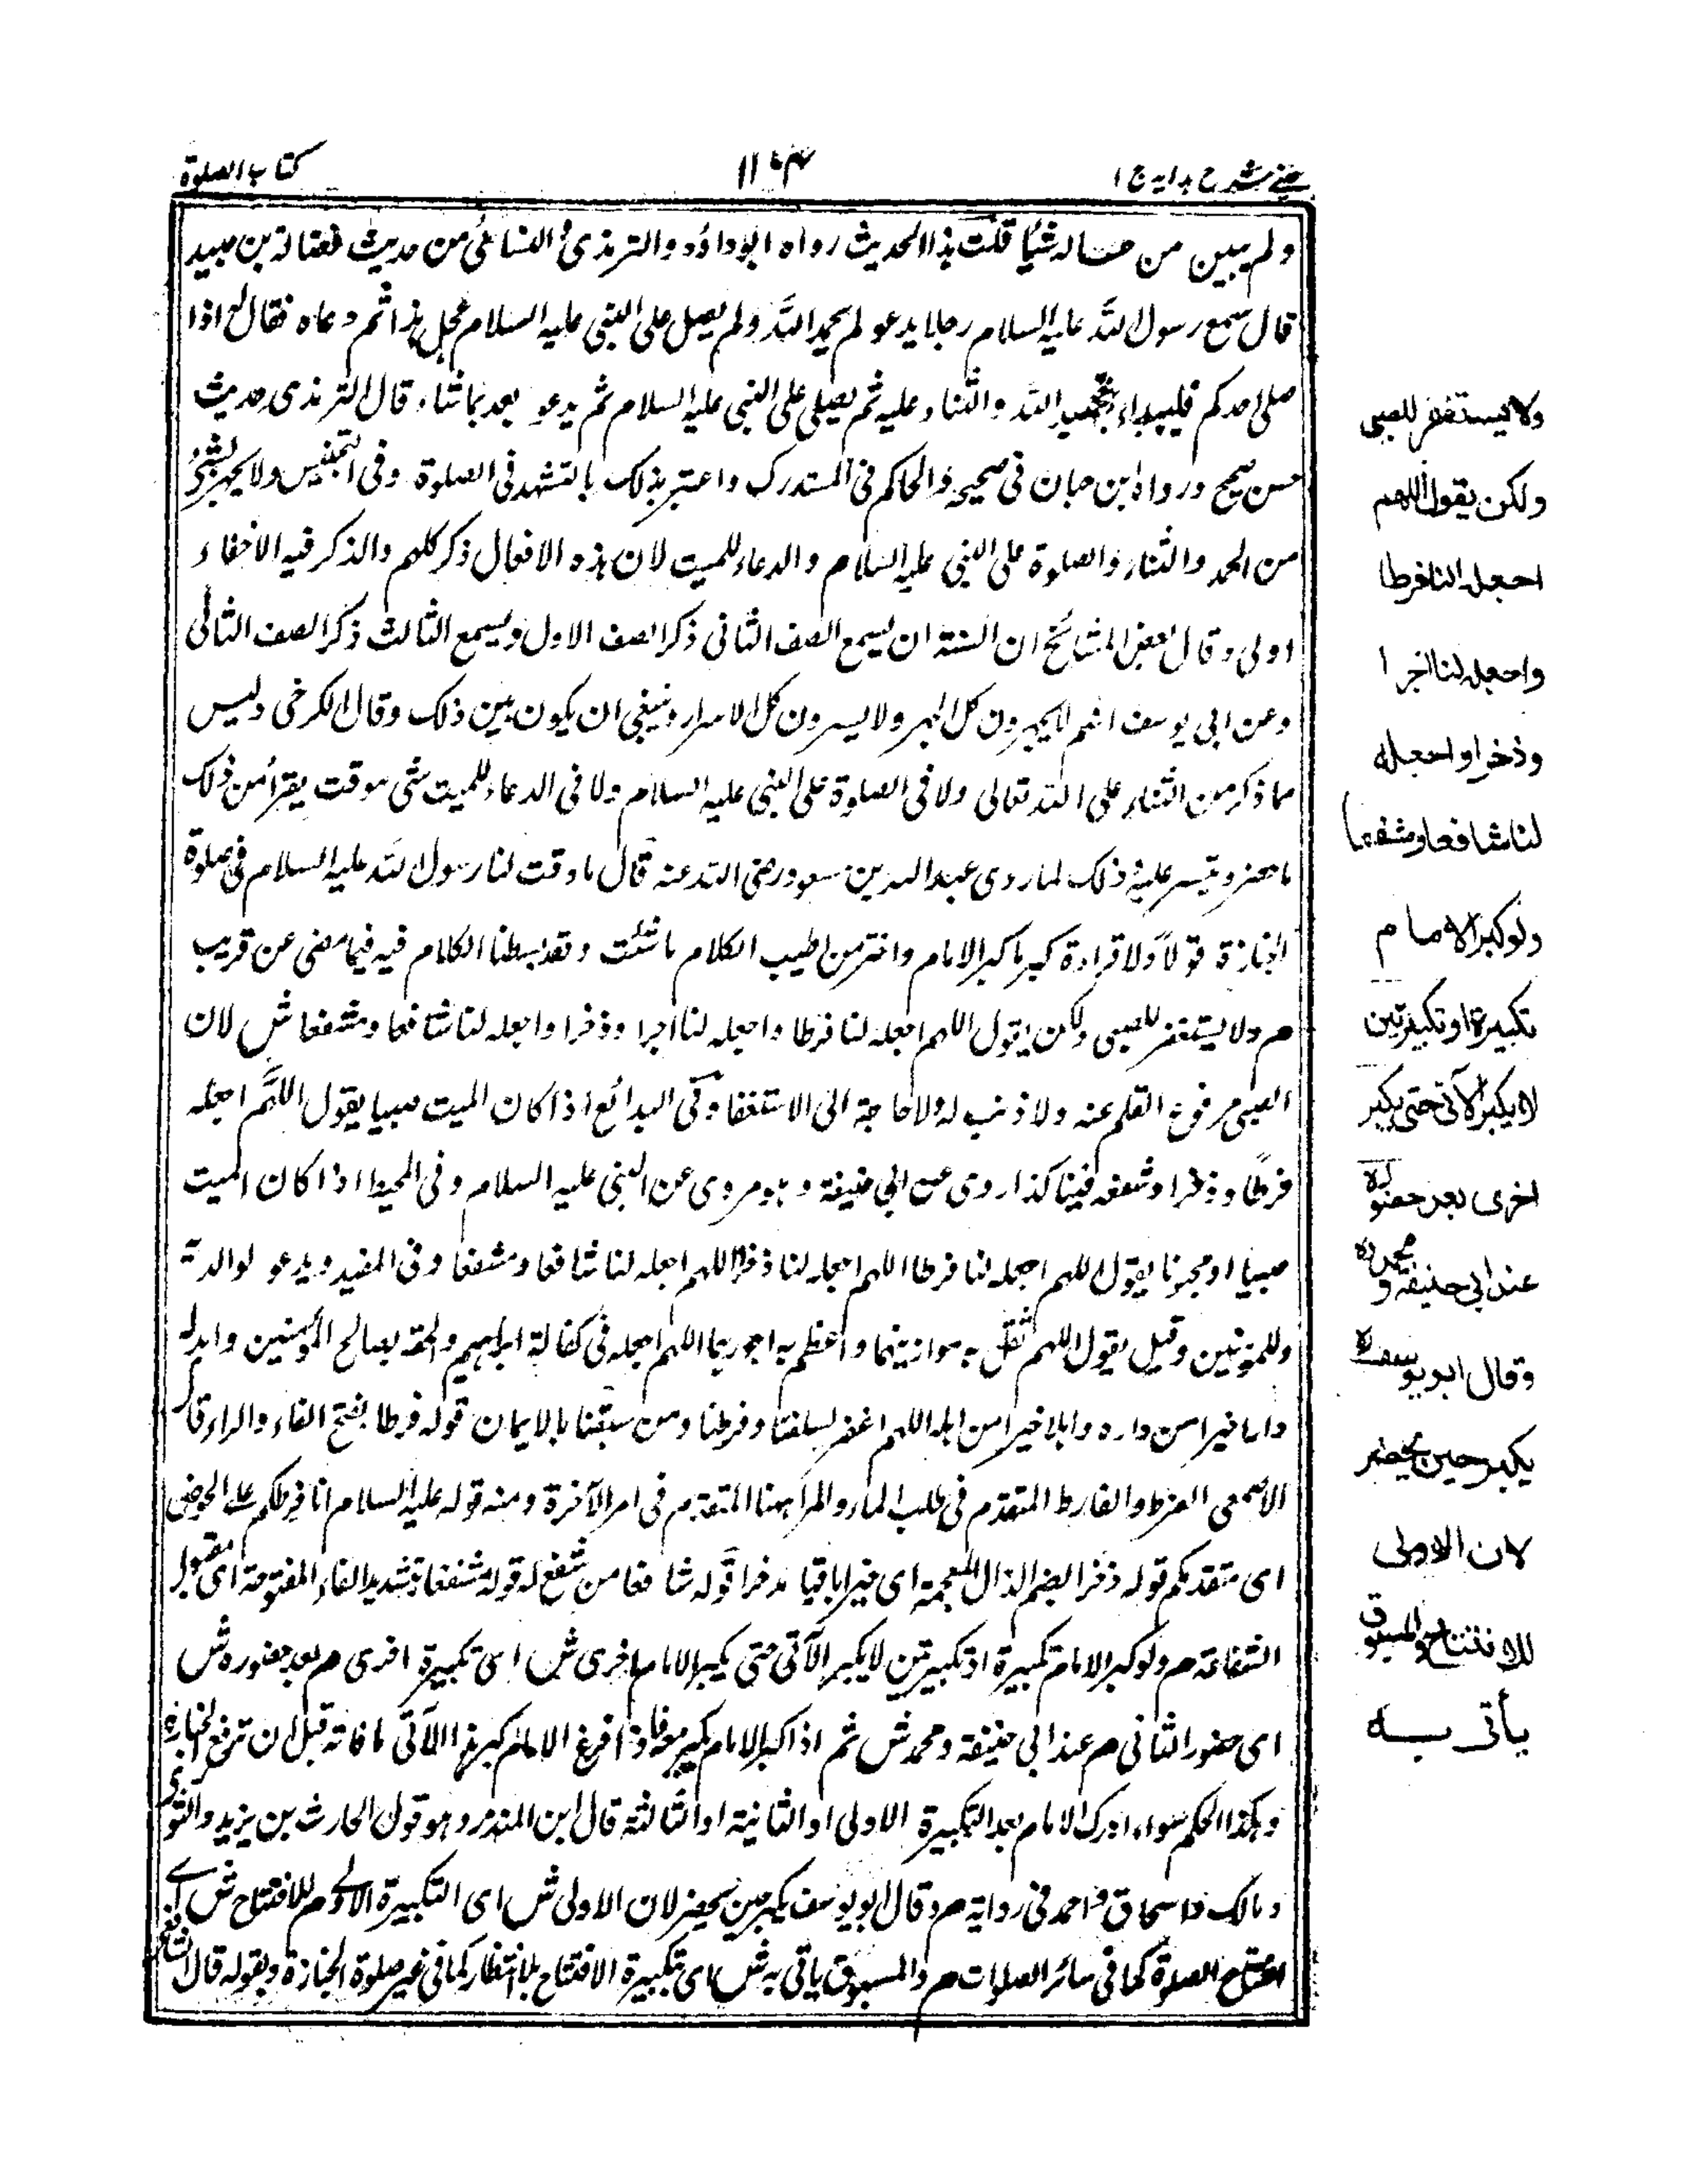 عینی شرح ہدایہ ج ۱
۱۱۰۴
کتاب الصلوة
ولم یبین من حاله شیئا قلت ہذا الحدیث رواه ابو داؤد والترمذی والنسائی من حدیث فضالة بن عبید
قال سمع رسول الله علیه السلام رجلا یدعو لم یحمد الله ولم یصل علی النبی علیه السلام عجل ہذا ثم دعاه فقال له اذا
صلی احدکم فلیبداء بتحمید الله والثناء علیه ثم یصلی علی النبی علیه السلام ثم یدعو بعد بما شاء قال الترمذی حدیث
حسن صحیح ورواه ابن حبان فی صحیحه والحاکم فی المستدرک واعتبر بذلک بالتشهد فی الصلوة وفی التجنیس ولا یجهر بشئ
من الحمد والثناء والصلوة علی النبی علیه السلام والدعاء للمیت لان ہذه الافعال ذکر کلهم والذکر فیه الاخفاء
اولی وقال بعض المشائخ ان السنة ان یسمع الصف الثانی ذکر الصف الاول ویسمع الثالث ذکر الصف الثانی
وعن ابی یوسف انهم لا یجهرون کل الجهر ولا یسرون کل الاسرار وینبغی ان یکون بین ذلک وقال الکرخی ولیس
مما ذکر من الثناء علی الله تعالی ولا فی الصلوة علی النبی علیه السلام ولا فی الدعاء للمیت شی موقت یقرأ من ذلک
ما حضر وتیسر علیه ذلک لما روی عبد الله بن مسعود رضی الله عنه قال ما وقت لنا رسول الله علیه السلام فی صلوة
الجنازة قولا ولا قراءة کبر ما کبر الامام واختر من اطیب الکلام ما شئت وقد بسطنا الکلام فیه فیما مضی عن قریب
م ولا یستغفر للصبی ولکن یقول اللهم اجعله لنا فرطا واجعله لنا اجرا وذخرا واجعله لنا شافعا ومشفعا ش لان
الصبی مرفوع القلم عنه ولا ذنب له ولا حاجة الی الاستغفار وفی البدائع اذا کان المیت صبیا یقول اللهم اجعله
فرطا وذخرا وشفعه فینا کذا روی عن ابی حنیفة وہو مروی عن النبی علیه السلام وفی المحیط اذا کان المیت
صبیا او مجنونا یقول اللهم اجعله لنا فرطا اللهم اجعله لنا ذخرا اللهم اجعله لنا شافعا ومشفعا وفی المفید ویدعو لوالدیه
وللمؤمنین وقیل یقول اللهم ثقل به موازینهما واعظم به اجورہما اللهم اجعله فی کفالة ابراہیم والحقه بصالح المؤمنین وابدله
دارا خیرا من داره واہلا خیرا من اہله اللهم اغفر لسلفنا وفرطنا ومن سبقنا بالایمان قوله فرطا بفتح الفاء والراء قال
الاصمعی الفرط والفارط المتقدم فی طلب الماء والمراد ہهنا المتقدم فی امر الآخرة ومنه قوله علیه السلام انا فرطکم علی الحوض
ای متقدمکم قوله ذخرا بضم الذال المعجمة ای خیرا باقیا مدخرا قوله شافعا من شفع له قوله مشفعا بتشدید الفاء المفتوحة ای مقبول
الشفاعة م ولو کبر الامام تکبیرة او تکبیرتین لا یکبر الآتی حتی یکبر الامام اخری ش ای تکبیرة اخری م بعد حضوره ش
ای حضور الثانی م عند ابی حنیفة ومحمد ش ثم اذا کبر الامام یکبر معه فاذا فرغ الامام کبر ہذا الآتی ما فاته قبل ان ترفع الجنازة
وہکذا الحکم سواء ادرک الامام بعد التکبیرة الاولی او الثانیة او الثالثة قال ابن المنذر وہو قول الحارث بن یزید والثوری
ومالک واسحاق واحمد فی روایة م وقال ابو یوسف یکبر حین یحضر لان الاولی ش ای التکبیرة الاولی م للافتتاح ش ای
افتتاح الصلوة کما فی سائر الصلوات م والمسبوق یاتی به ش ای تکبیرة الافتتاح بلا انتظار کما فی غیر صلوة الجنازة وبقوله قال الشافعی
ولا یستغفر للصبی
ولکن یقول اللهم
اجعله لنا فرطا
واجعله لنا اجرا
وذخرا واجعله
لنا شافعا ومشفعا
ولو کبر الامام
تکبیرة او تکبیرتین
لا یکبر الآتی حتی یکبر
اخری بعد حضوره
عند ابی حنیفة ومحمد
وقال ابو یوسف
یکبر حین یحضر
لان الاولی
للافتتاح والمسبوق
یأتی به